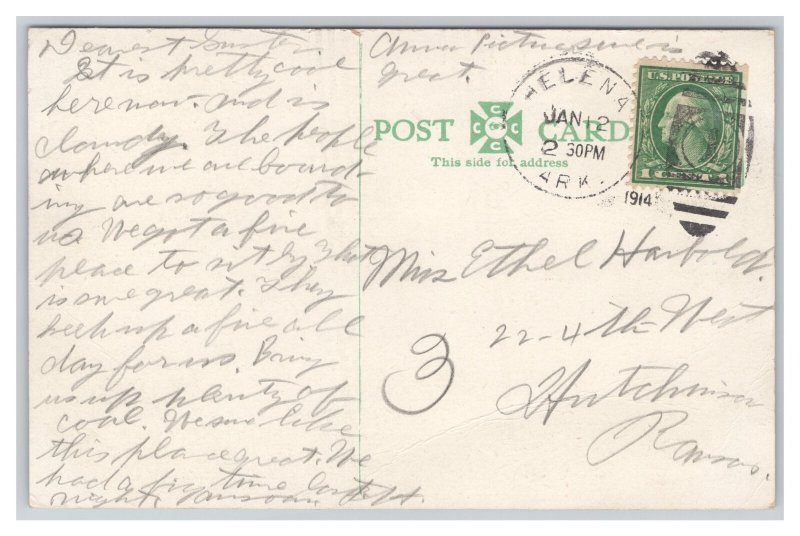 Dearest Sister
It is pretty cool
here now. And is
cloudy. The people
where we are board-
ing are so good to
us We got a fire
place to sit by that
is sure great. They
keep up a fire all
day for us. Bring
us up plenty of
coal. We sure like
this place great. We
had a big time last
night.
picture sure is
great.
POST CARD
This side for address
HELENA
JAN 2
2 30PM
ARK.
1914
U.S. POSTAGE
1 CENT 1
Miss Ethel Harbold.
22-4th West
Hutchinson
Kansas.
3